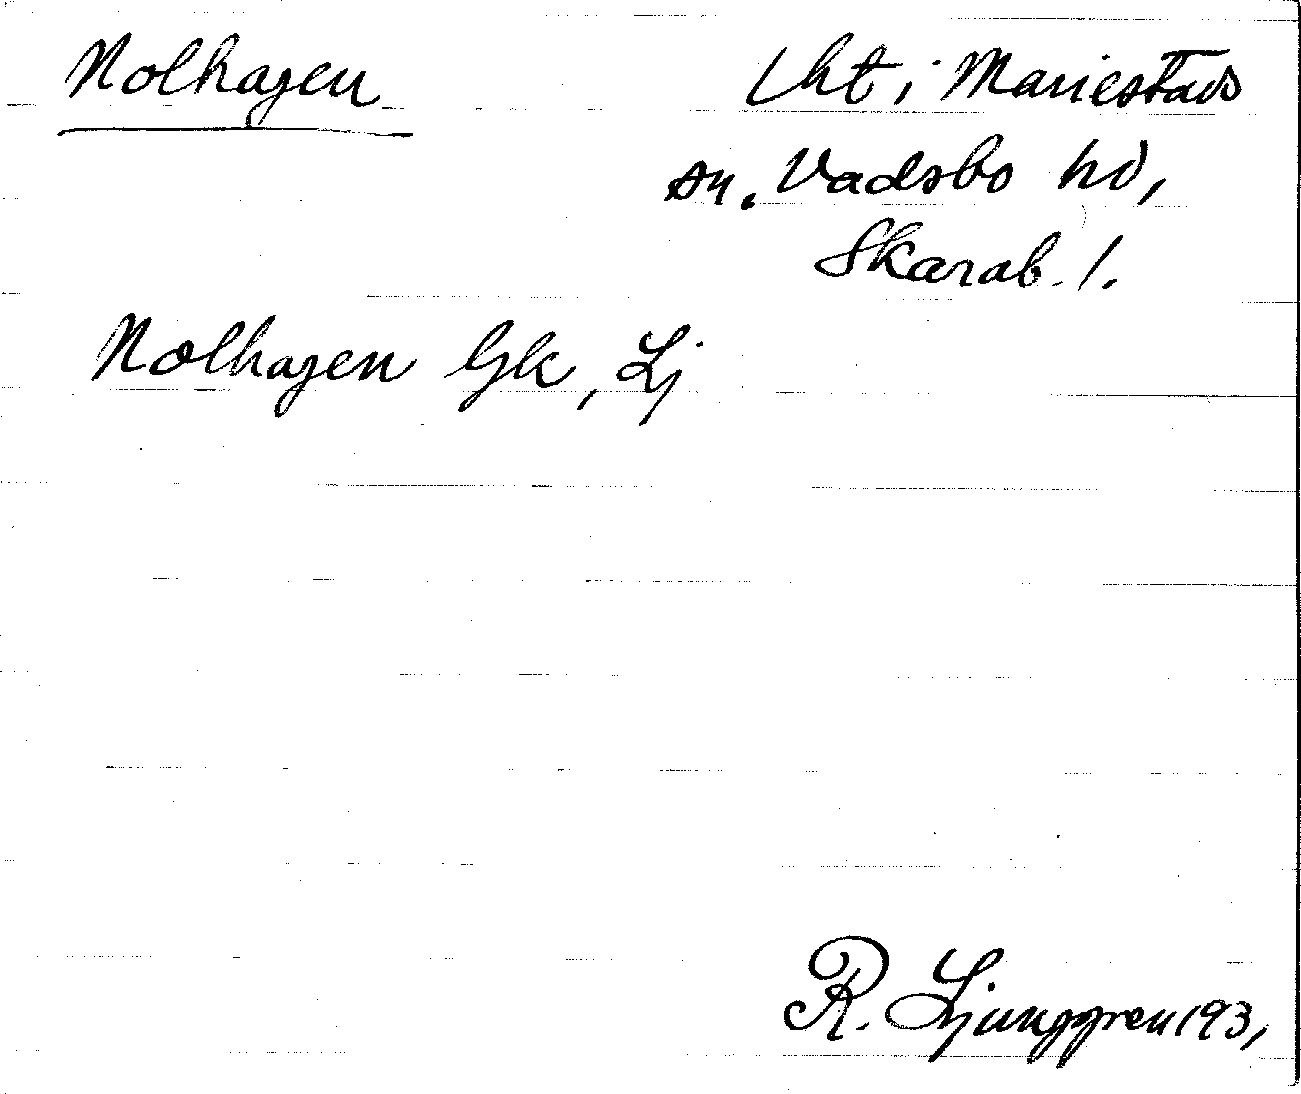 Nolhagen
Lht i Mariestads
sn. Vadsbo hd,
Skarab. l.
Nolhagen Gk, Lj
R. Ljunggren 193,